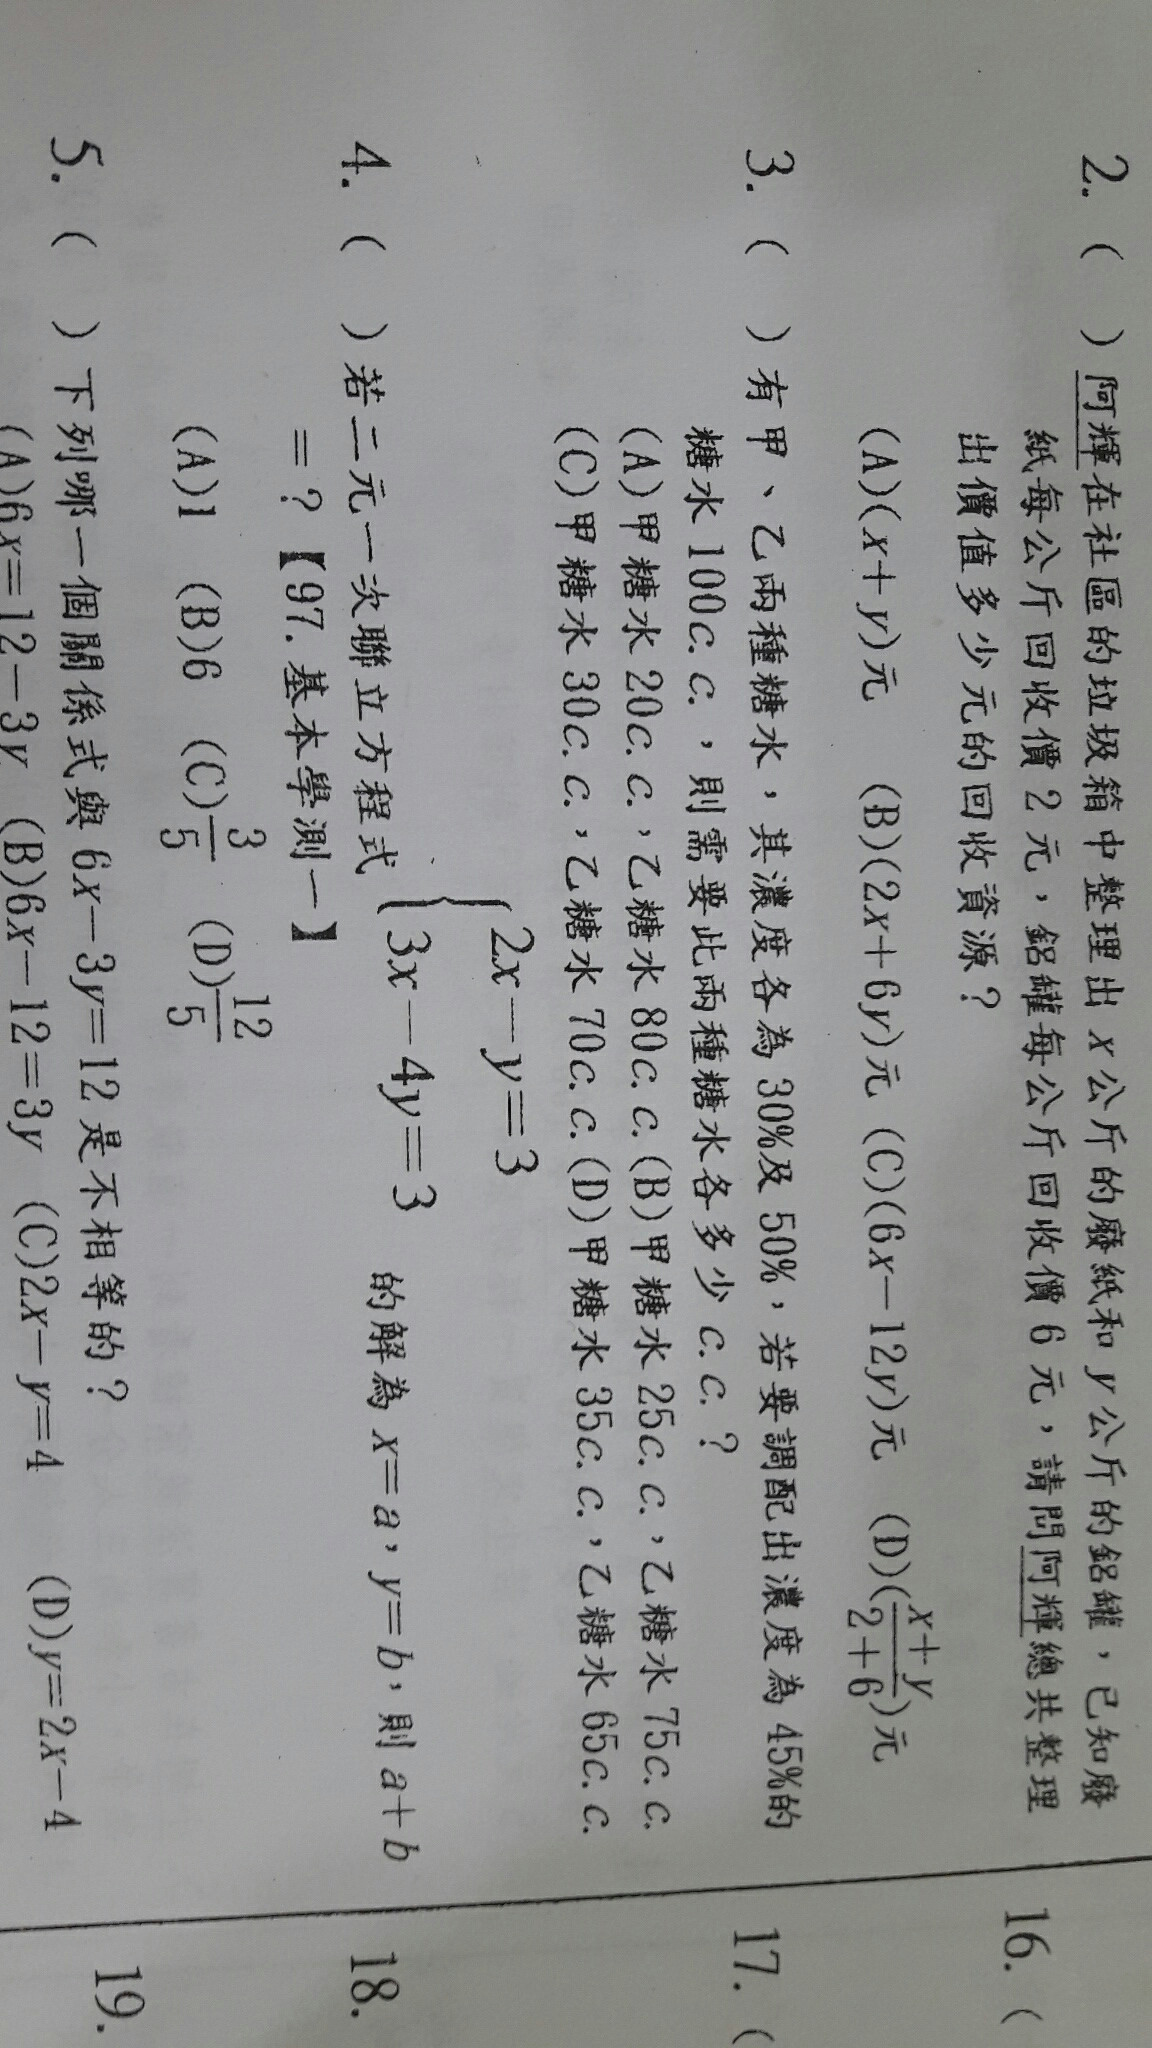 2. (　) 阿輝在社區的垃圾箱中整理出 x 公斤的廢紙和 y 公斤的鋁罐，已知廢
紙每公斤回收價 2 元，鋁罐每公斤回收價 6 元，請問阿輝總共整理
出價值多少元的回收資源？
(A)(x＋y)元 (B)(2x＋6y)元 (C)(6x－12y)元 (D)(\frac{x＋y}{2＋6})元
3. (　) 有甲、乙兩種糖水，其濃度各為 30%及 50%，若要調配出濃度為 45%的
糖水 100c.c.，則需要此兩種糖水各多少 c.c.？
(A)甲糖水 20c.c.，乙糖水 80c.c. (B)甲糖水 25c.c.，乙糖水 75c.c.
(C)甲糖水 30c.c.，乙糖水 70c.c. (D)甲糖水 35c.c.，乙糖水 65c.c.
2x－y＝3
4. (　) 若二元一次聯立方程式 { 3x－4y＝3 的解為 x＝a，y＝b，則 a＋b
＝？【97.基本學測一】
(A)1 (B)6 (C)\frac{3}{5} (D)\frac{12}{5}
5. (　) 下列哪一個關係式與 6x－3y＝12 是不相等的？
(A)6x＝12－3y (B)6x－12＝3y (C)2x－y＝4 (D)y＝2x－4
16. (
17. (
18.
19.